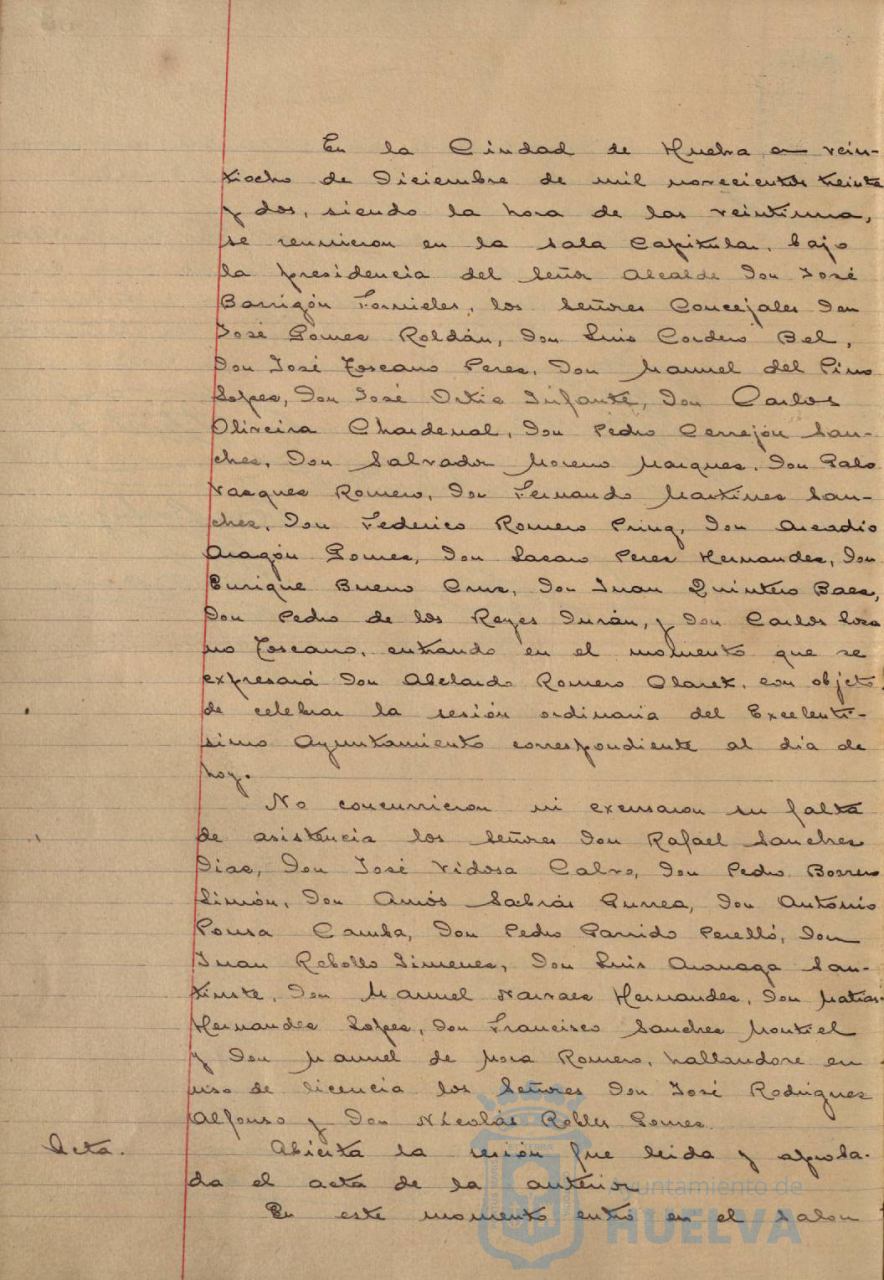 En la Ciudad de Huelva a vein-
tiocho de Diciembre de mil novecientos treinta
y dos, siendo la hora de las veintiuna,
se reunieron en la sala Capitular, bajo
la presidencia del Señor Alcalde Don José
Barrigón Fornieles, los Señores Concejales Don
José Gomez Roldán, Don Luis Cordero Bel,
Don José Toscano Perez, Don Manuel del Pino
Lopez, Don José Ortiz Infante, Don Carlos
Oliveira Chardenal, Don Pedro Cerrejón San-
chez, Don Salvador Moreno Marquez, Don Galo
Vazquez Romero, Don Fernando Martinez San-
chez, Don Federico Romero Don Arcadio
Aragón Gomez, Don Lazaro Perez Hernandez, Don
Enrique Bueno Cruz, Don Juan Quintero Baez,
Don Pedro de los Reyes Durán, y Don Carlos Loza
no Toscano, entrando en el momento que se
expresará Don Abelardo Romero Claret, con objeto
de celebrar la sesión ordinaria del Excelentí-
simo Ayuntamiento correspondiente al día de
hoy.
No concurrieron ni excusaron su falta
de asistencia los Señores Don Rafael Sanchez
Diaz, Don José Vidosa Calvo, Don Pedro Borrero
Limón, Don Amós Sabrás Gurrea, Don Antonio
Pousa Camba, Don Pedro Garrido Perelló, Don
Juan Rebollo Jimenez, Don Luis San-
Don Manuel Narvaez Hernandez, Don Matias
Hernandez Lopez, Don Francisco Sanchez Montiel
y Don Manuel de Mora Romero, hallandose en
uso de licencia los Señores Don José Rodriguez
Alfonso y Don Nicolás Robles Gomez.
Acta. Abierta la sesión fue leida y aproba-
da el acta de la anterior
En este momento entró en el Salon
Ayuntamiento de
HUELVA